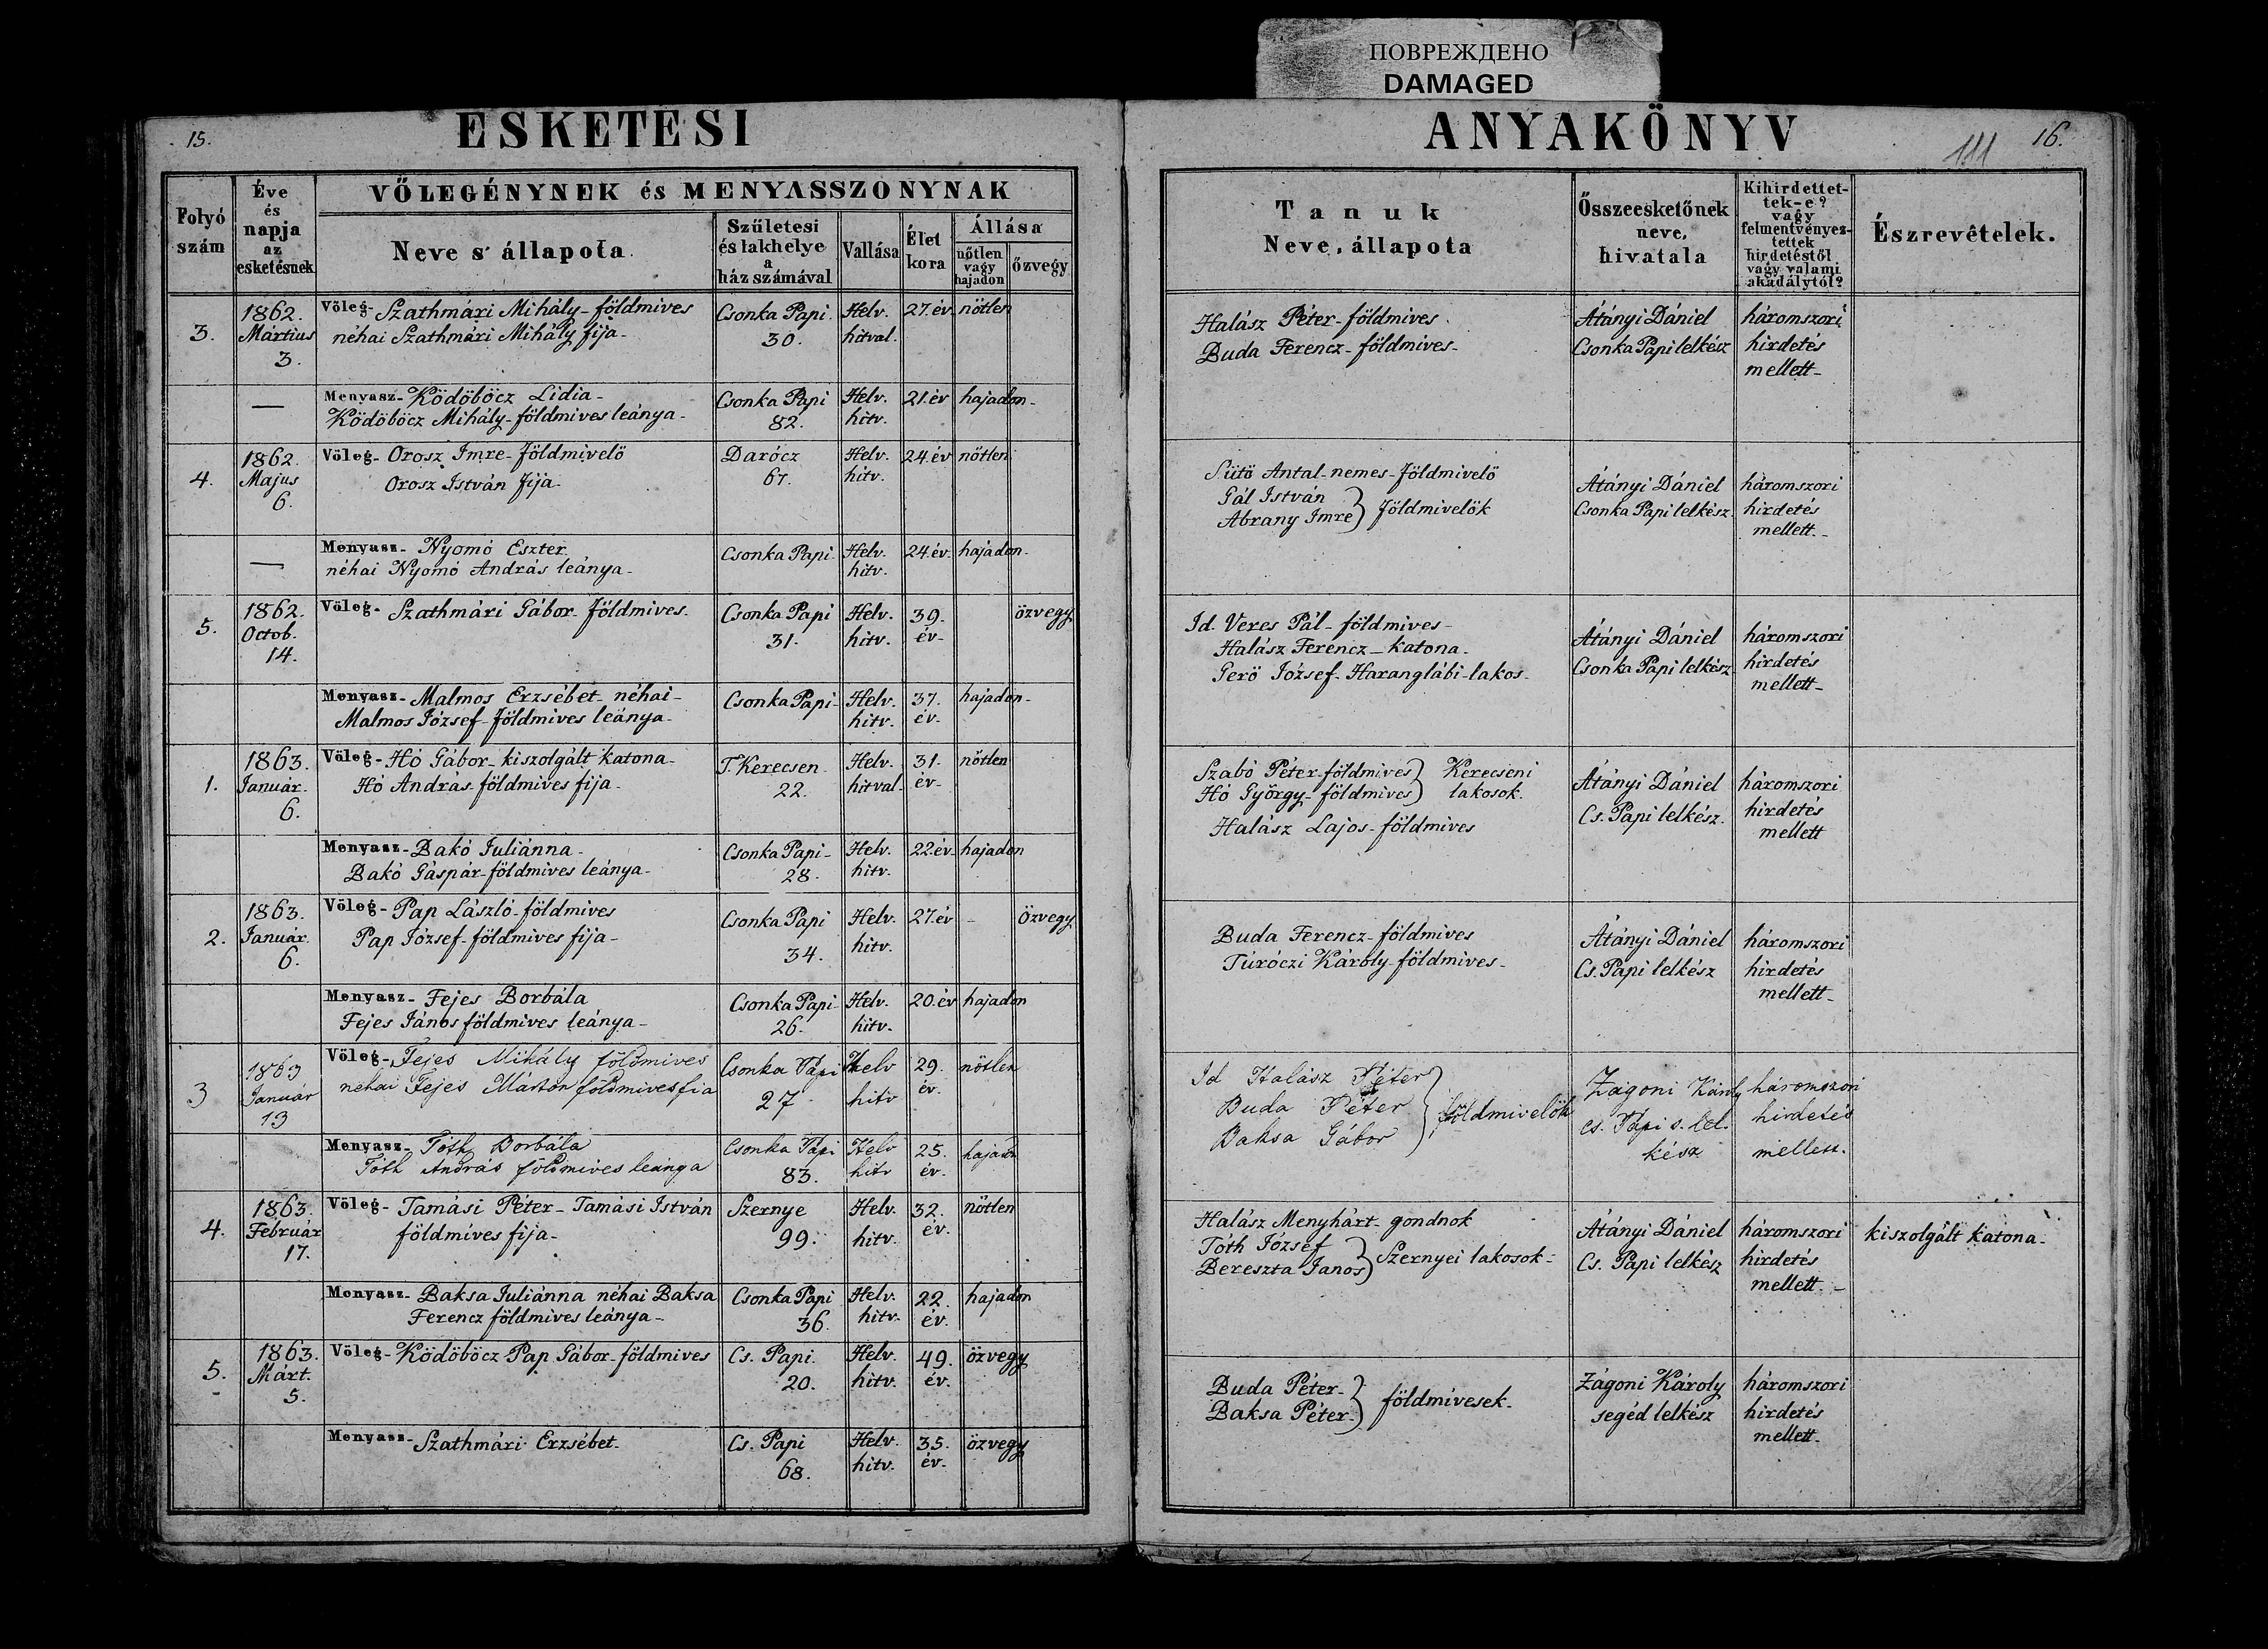 ПОВРЕЖДЕНО
DAMAGED
15.
ESKETESI
ANYAKÖNYV
111
16.
Folyó szám
Éve és napja az esketésnek
VŐLEGÉNYNEK és MENYASSZONYNAK
Neve s' állapota.
Születesi és lakhelye a ház számával
Vallása
Élet kora
Állása
nőtlen vagy hajadon
özvegy
Tanuk
Neve, állapota
Összeesketőnek neve, hivatala
Kihirdettet-tek-e? vagy felmentvényez-tettek hirdetéstől vagy valami akadálytól?
Észrevételek.
3.
1862. Mártius 3.
Völeg- Szathmári Mihály- földmives
néhai Szathmári Mihály fija-
Csonka Papi. 30.
Helv. hitval.
27. év
nötlen
Halász Péter- földmives.
Buda Ferencz- földmives-
Átányi Dániel
Csonka Papi lelkész
háromszori
hirdetés
mellett-
—
Menyasz- Ködöböcz Lidia-
Ködöböcz Mihály- földmives leánya-
Csonka Papi 82.
Helv. hitv.
21. év
hajadon-
4.
1862. Majus 6.
Völeg- Orosz Imre- földmivelö
Orosz István fija-
Darócz 67.
Helv. hitv.
24. év
nötlen
Sütö Antal- nemes- földmivelö
Gál István
Abrany Imre } földmivelök
Átányi Dániel
Csonka Papi lelkész.
háromszori
hirdetés
mellett.-
—
Menyasz- Nyomó Eszter
néhai Nyomó András leánya-
Csonka Papi-
Helv. hitv.
24. év-
hajadon-
5.
1862. Octob. 14.
Völeg- Szathmári Gábor- földmives-
Csonka Papi 31.
Helv. hitv.
39. év-
özvegy
Id. Veres Pál- földmives-
Halász Ferencz- katona.
Gerö József- Haranglábi- lakos-
Átányi Dániel
Csonka Papi lelkész
háromszori
hirdetés
mellett-
Menyasz- Malmos Erzsébet- néhai-
Malmos József- földmives leánya-
Csonka Papi-
Helv. hitv.
37. év-
hajadon-
1.
1863. Január. 6.
Völeg- Hó Gábor- kiszolgált katona-
Hó András- földmives fija-
T. Kerecsen 22.
Helv. hitval.
31. év-
nötlen
Szabó Péter- földmives
Hó György- földmives } Kerecseni lakosok.
Halász Lajos- földmives
Átányi Dániel
Cs. Papi lelkész.
háromszori
hirdetés
mellett
Menyasz- Bakó Juliánna-
Bakó Gáspár- földmives leánya-
Csonka Papi- 28.
Helv. hitv.
22. év-
hajadon
2.
1863. Január. 6.
Völeg- Pap László- földmives
Pap József- földmives fija-
Csonka Papi 34.
Helv. hitv.
27. év
-
özvegy
Buda Ferencz- földmives
Túróczi Károly- földmives-
Átányi Dániel
Cs. Papi lelkész
háromszori
hirdetés
mellett-
Menyasz- Fejes Borbála
Fejes János földmives leánya-
Csonka Papi- 26.
Helv. hitv.
20. év
hajadon
3
1863 Január 13
Völeg- Fejes Mihály földmives
néhai Fejes Márton földmives fia
Csonka Papi 27
Helv hitv
29. év.
nötlen
Id Halász Péter
Buda Péter
Baksa Gábor } földmivelök
Zágoni Károly
cs. Papi s. lel.
kész
háromszori
hirdetés
mellett.
Menyasz- Tóth Borbála
Tóth András földmives leánya
Csonka Papi 83.
Helv hitv
25. év.
hajadon
4.
1863. Február 17.
Völeg- Tamási Péter- Tamási István
földmíves fija-
Szernye 99.
Helv. hitv.
32. év.
nötlen
Halász Menyhárt- gondnok
Tóth József
Bereszta Janos } Szernyei lakosok-
Átányi Dániel
Cs. Papi lelkész
háromszori
hirdetés
mellett.-
kiszolgált katona-
Menyasz- Baksa Juliánna néhai Baksa
Ferencz földmives leánya-
Csonka Papi 36.
Helv. hitv-
22. év.
hajadon
5.
1863. Márt. 5.
Völeg- Ködöböcz Pap Gábor- földmives
Cs. Papi. 20.
Helv. hitv.
49. év.
özvegy
Buda Péter-
Baksa Péter- } földmívesek.
Zágoni Károly
segéd lelkész
háromszori
hirdetés
mellett-
Menyasz- Szathmári Erzsébet-
Cs. Papi 68.
Helv. hitv.
35. év.
özvegy